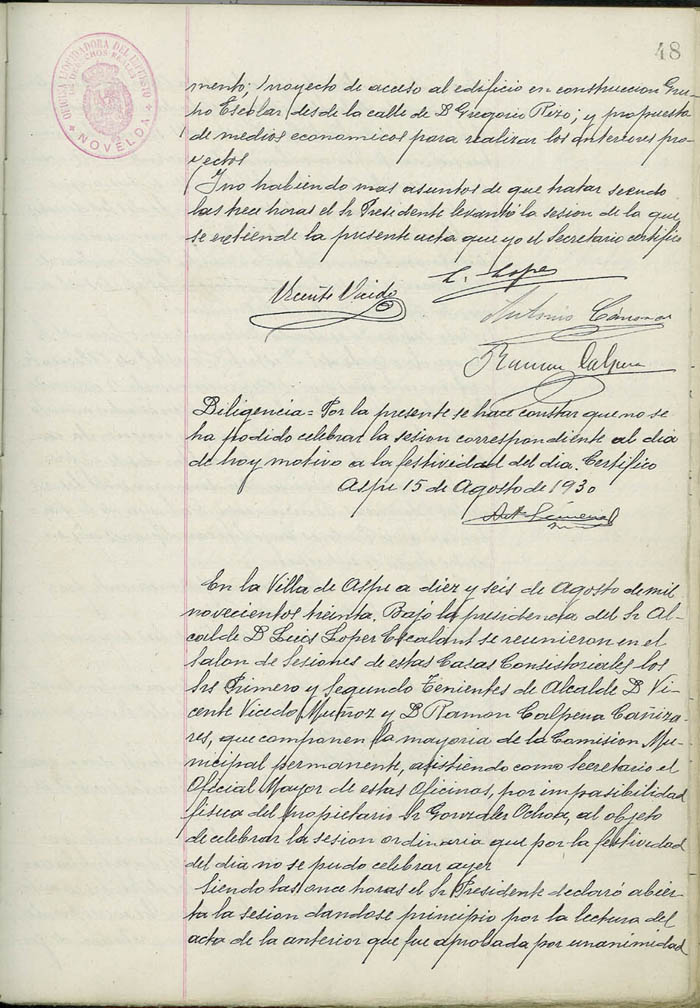 48
OFICINA LIQUIDADORA DEL IMPUESTO
DE DERECHOS REALES
NOVELDA
mento; Proyecto de acceso al edificio en construccion Gru-
po Escolar, desde la calle de D Gregorio Rizo; y propuesta
de medios economicos para realizar los anteriores pro-
yectos
Y no habiendo mas asuntos de que tratar siendo
las trece horas el Sr Presidente levantó la sesion de la que
se extiende la presente acta que yo el Secretario certifico
L. Lopez
Vicente Vicedo
Antonio
Ramon Calpena
Diligencia = Por la presente se hace constar que no se
ha podido celebrar la sesion correspondiente al dia
de hoy motivo a la festividad del dia. Certifico
Aspe 15 de Agosto de 1930
En la Villa de Aspe a diez y seis de Agosto de mil
novecientos treinta. Bajo la presidencia del Sr Al-
calde D Luis Lopez Escalant se reunieron en el
Salon de Sesiones de estas Casas Consistoriales los
Srs Primero y Segundo Tenientes de Alcalde D Vi-
cente Vicedo Muñoz y D Ramon Calpena Cañiza-
res, que componen la mayoria de la Comision Mu-
nicipal permanente, asistiendo como Secretario el
Oficial Mayor de estas Oficinas, por imposibilidad
fisica del propietario Sr Gonzalez Ochoa, al objeto
de celebrar la sesion ordinaria que por la festividad
del dia no se pudo celebrar ayer
Siendo las once horas el Sr Presidente declaró abier-
ta la sesion dandose principio por la lectura del
acta de la anterior que fue aprobada por unanimidad